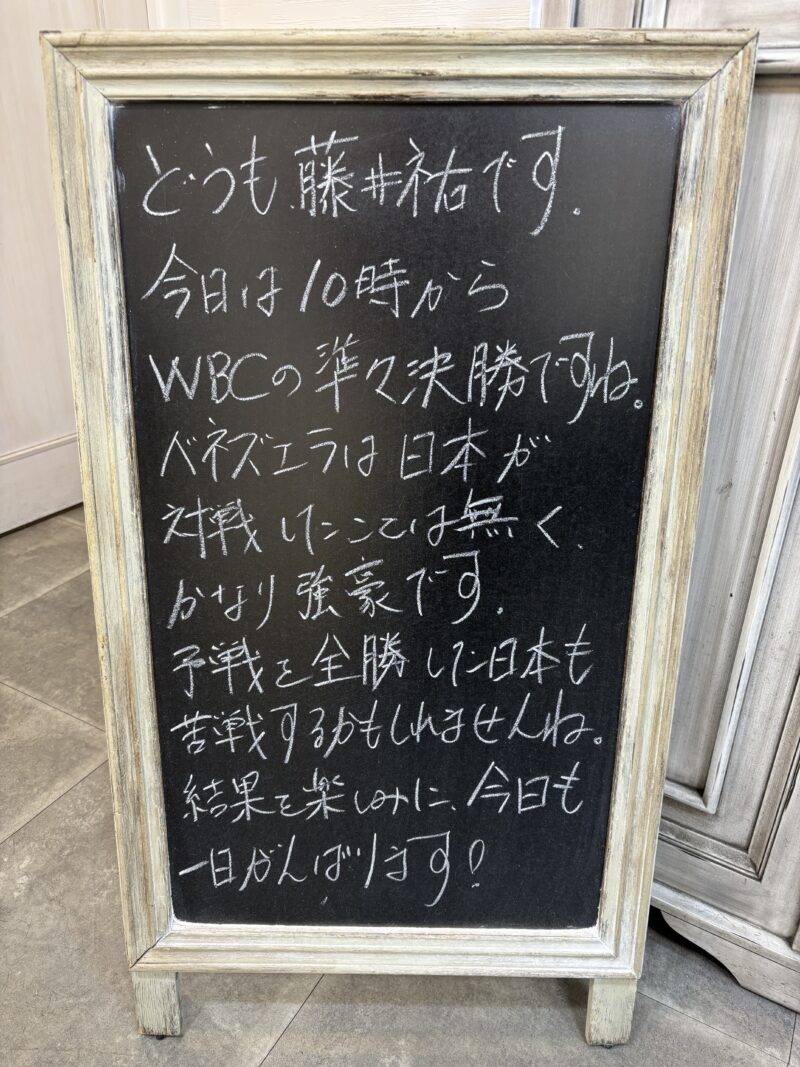 どうも、藤井祐です。
今日は10時から
WBCの準々決勝ですね。
ベネズエラは日本が
対戦したことは無く、
かなり強豪です。
予戦を全勝した日本も
苦戦するかもしれませんね。
結果を楽しみに、今日も
一日がんばります!